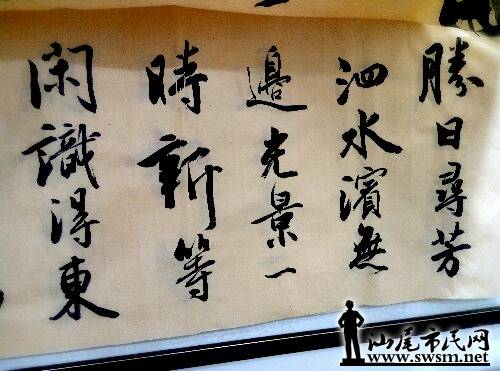 勝日尋芳
泗水濱無
邊光景一
時新等
閑識得東
汕尾市民网
www.swsm.net